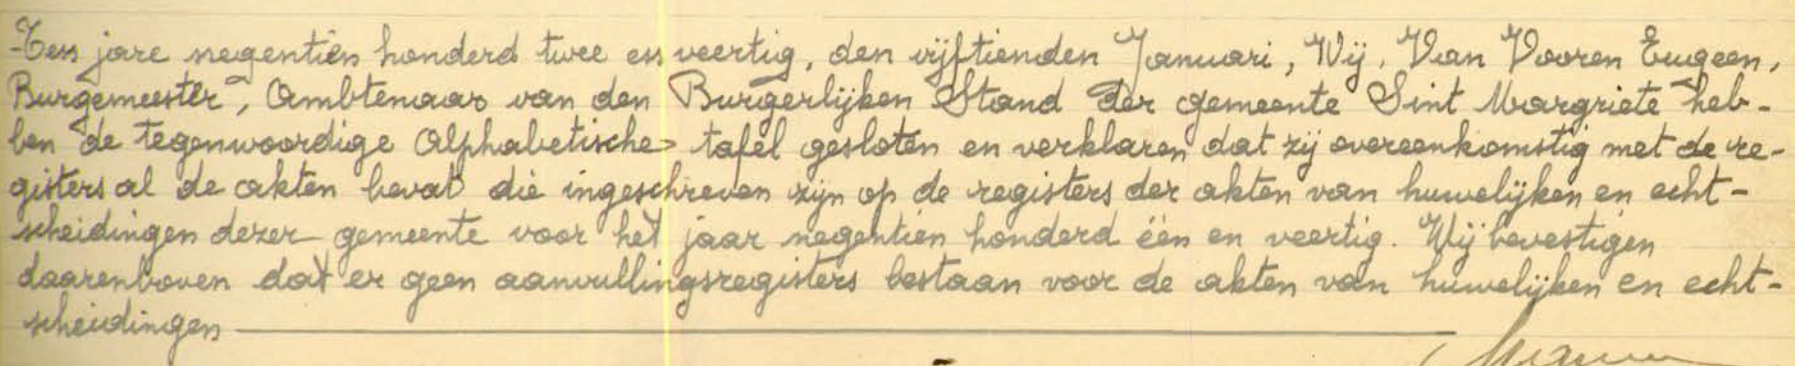 Ten jare negentien honderd twee en veertig, den vijftienden Januari, Wij, Van Vooren Eugeen,
Burgemeester, Ambtenaar van den Burgerlijken Stand der gemeente Sint Margriete heb-
ben de tegenwoordige Alphabetische tafel gesloten en verklaren dat zij overeenkomstig met de re-
gisters al de akten bevat die ingeschreven zijn op de registers der akten van huwelijken en echt-
scheidingen dezer gemeente voor het jaar negentien honderd één en veertig. Wij bevestigen
daarenboven dat er geen aanvullingsregisters bestaan voor de akten van huwelijken en echt-
scheidingen